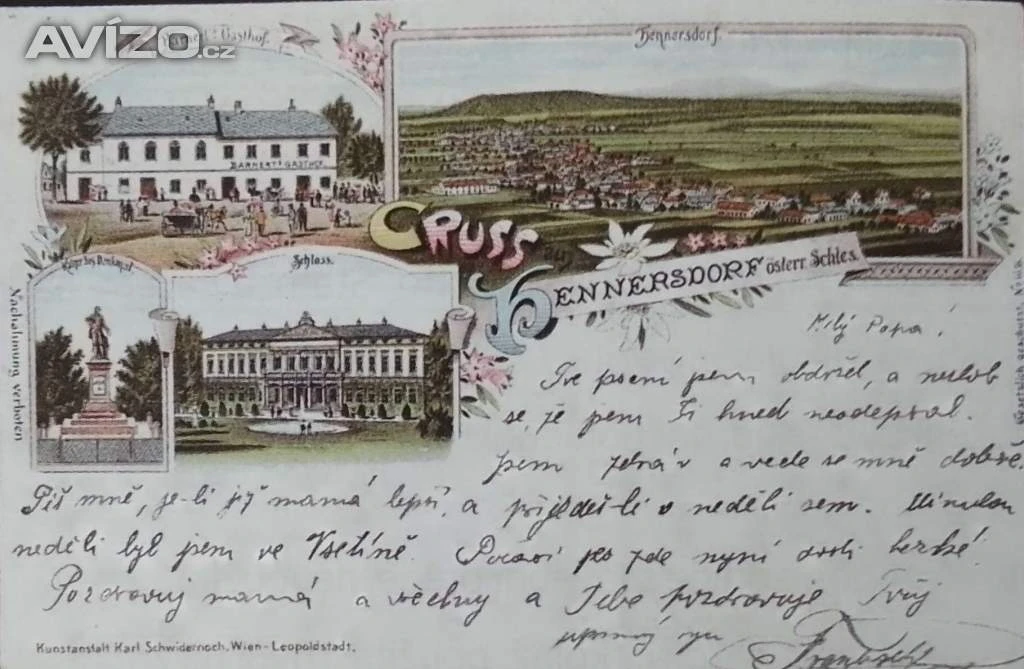 AVÍZO.cz
Barnert's Gasthof.
Hennersdorf.
BARNERT'S GASTHOF.
GRUSS aus
HENNERSDORF österr. Schles.
Denkmal
Schloss.
Nachahmung verboten
Milý Papa!
Tvé psaní jsem obdržel, a nezlob
se, že jsem Ti hned neodepsal.
Jsem zdráv a vede se mně dobře.
Piš mně, je-li již mamá lepší, a přijedeš-li v neděli sem. Minulou
neděli byl jsem ve Vsetíně. Počasí je zde nyní dosti hezké!
Pozdravuj mamá a všechny a Tebe pozdravuje Tvůj
upřímný syn
František
Kunstanstalt Karl Schwidernoch, Wien-Leopoldstadt.